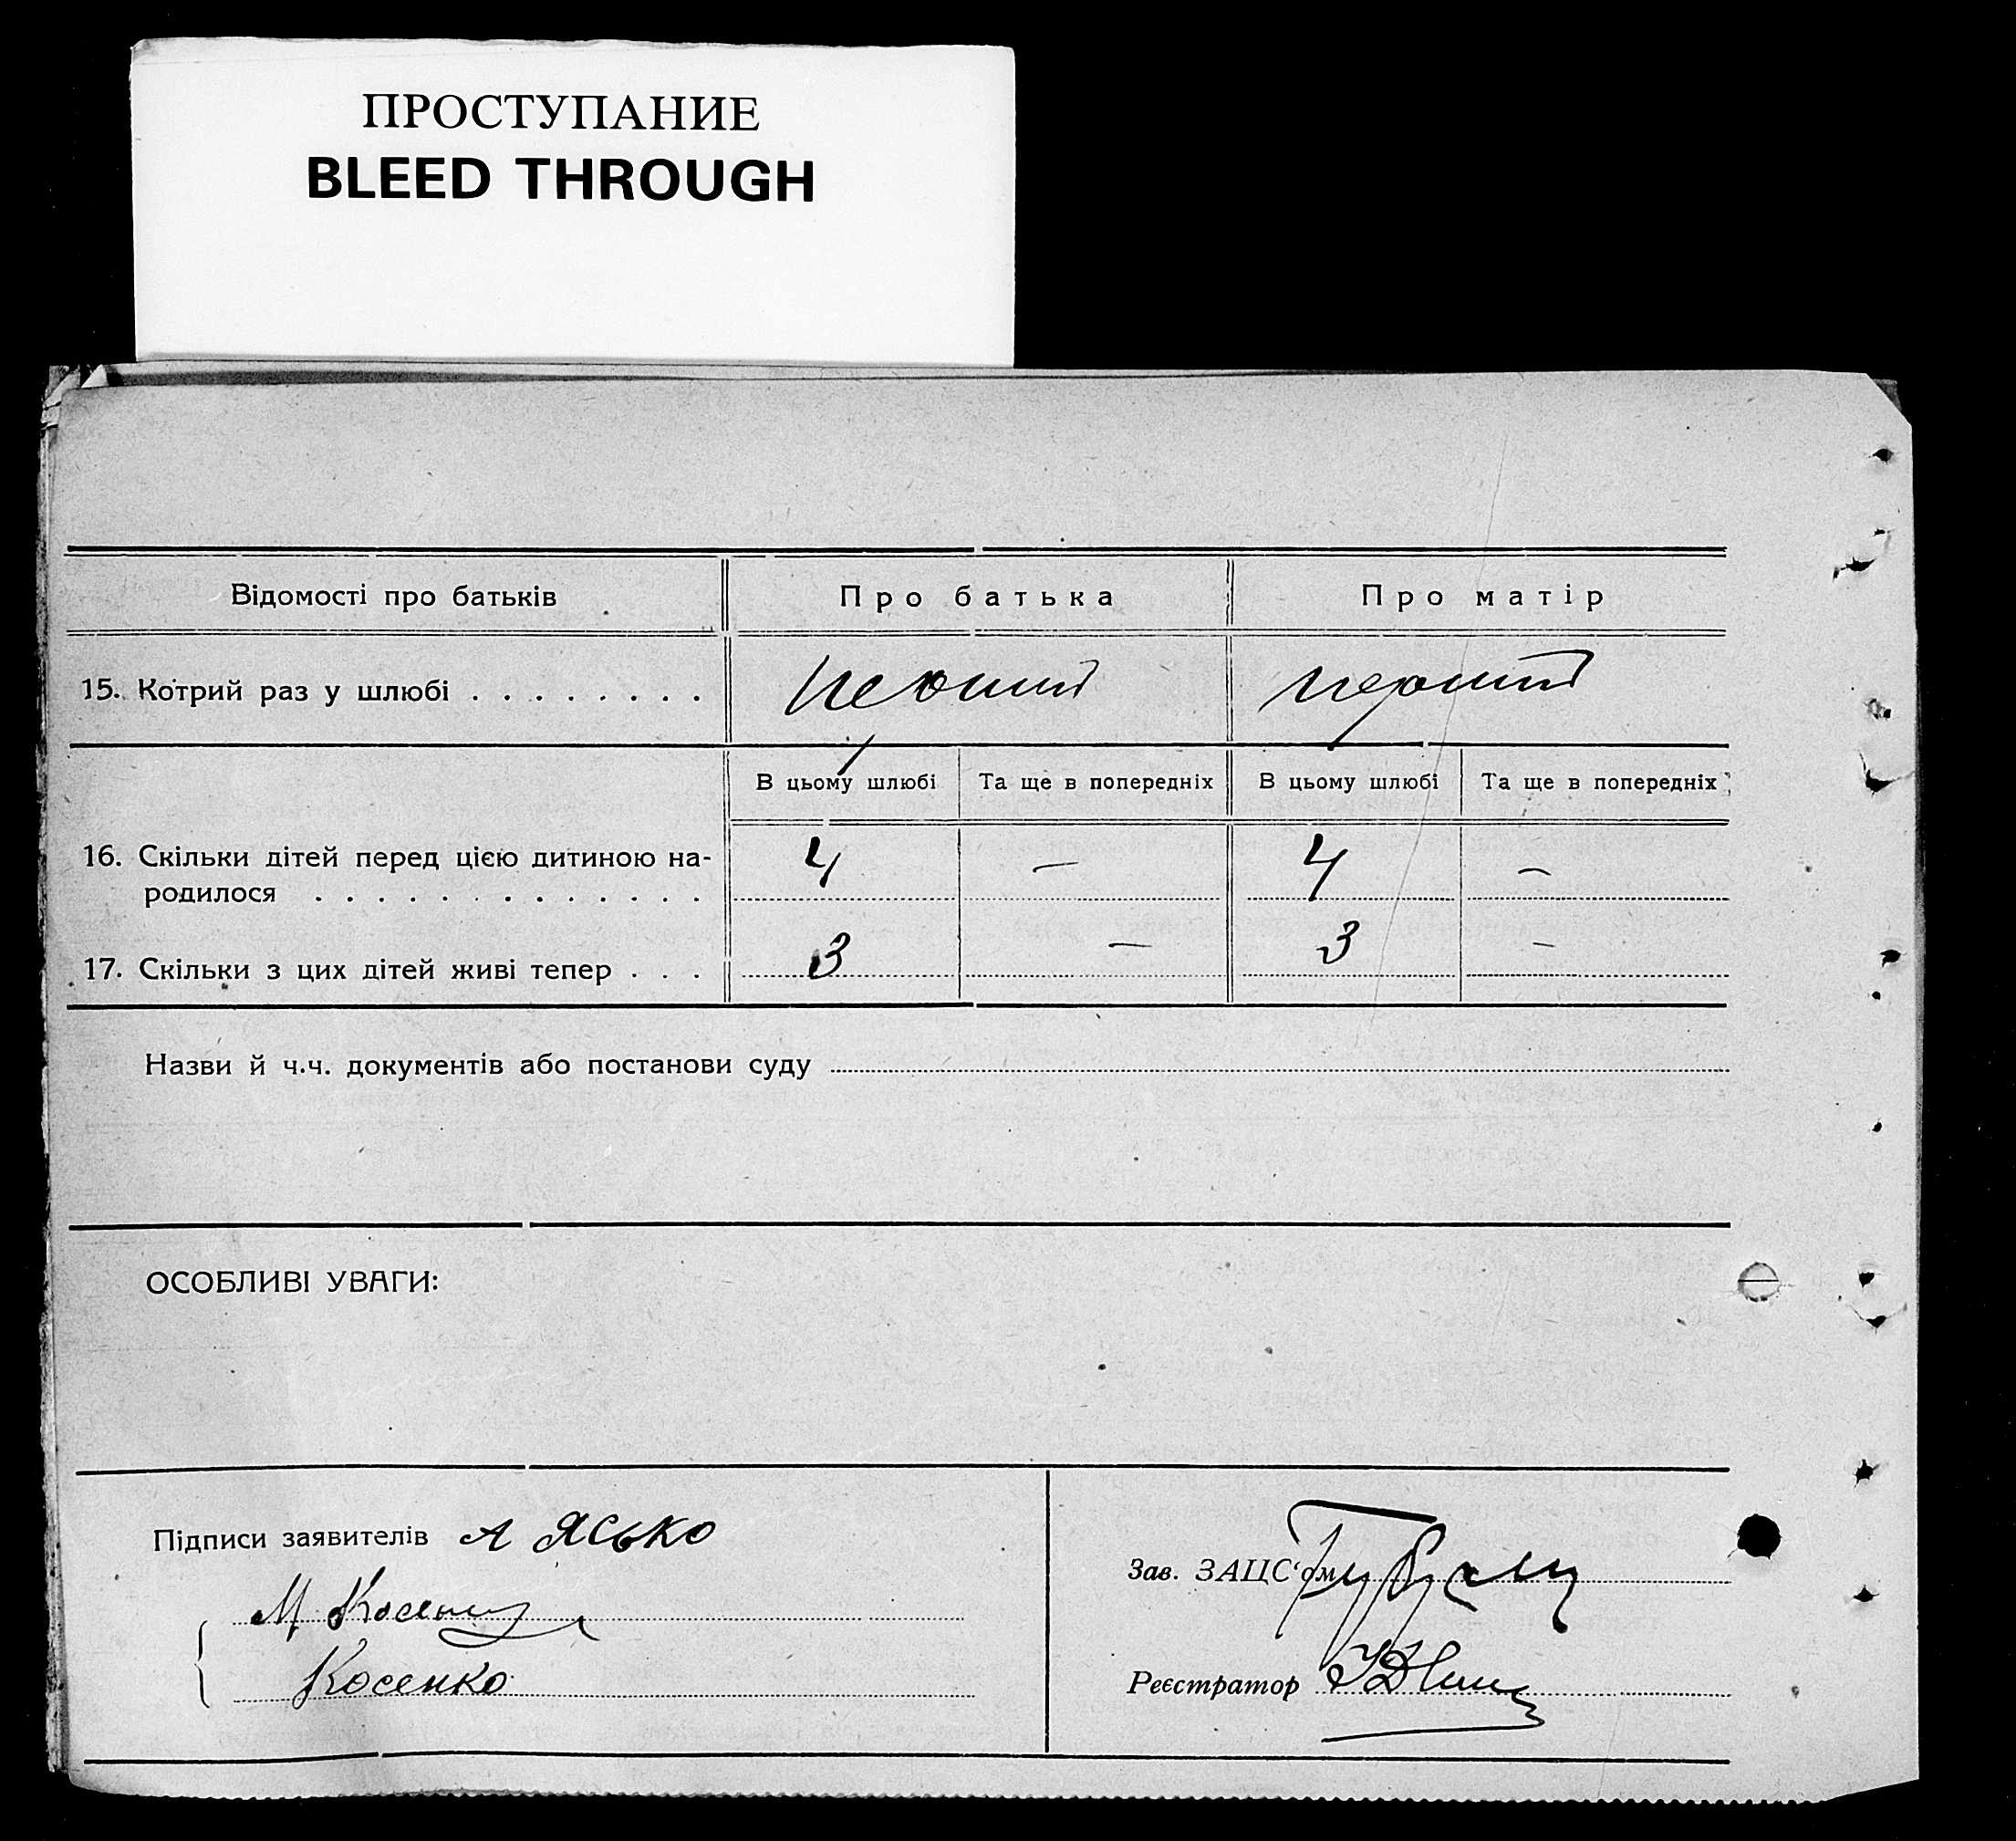 ПРОСТУПАНИЕ
BLEED THROUGH
Відомості про батьків Про батька Про матір
15. Котрий раз у шлюбі . . . . . . . . перший перший
В цьому шлюбі Та ще в попередніх В цьому шлюбі Та ще в попередніх
16. Скільки дітей перед цією дитиною на-
родилося . . . . . . . . . . . . . 4 — 4 —
17. Скільки з цих дітей живі тепер . . . 3 — 3 —
Назви й ч.ч. документів або постанови суду
ОСОБЛИВІ УВАГИ:
Підписи заявителів А Ясько
М Косенко
Косенко
Зав. ЗАЦС‘ом
Реєстратор